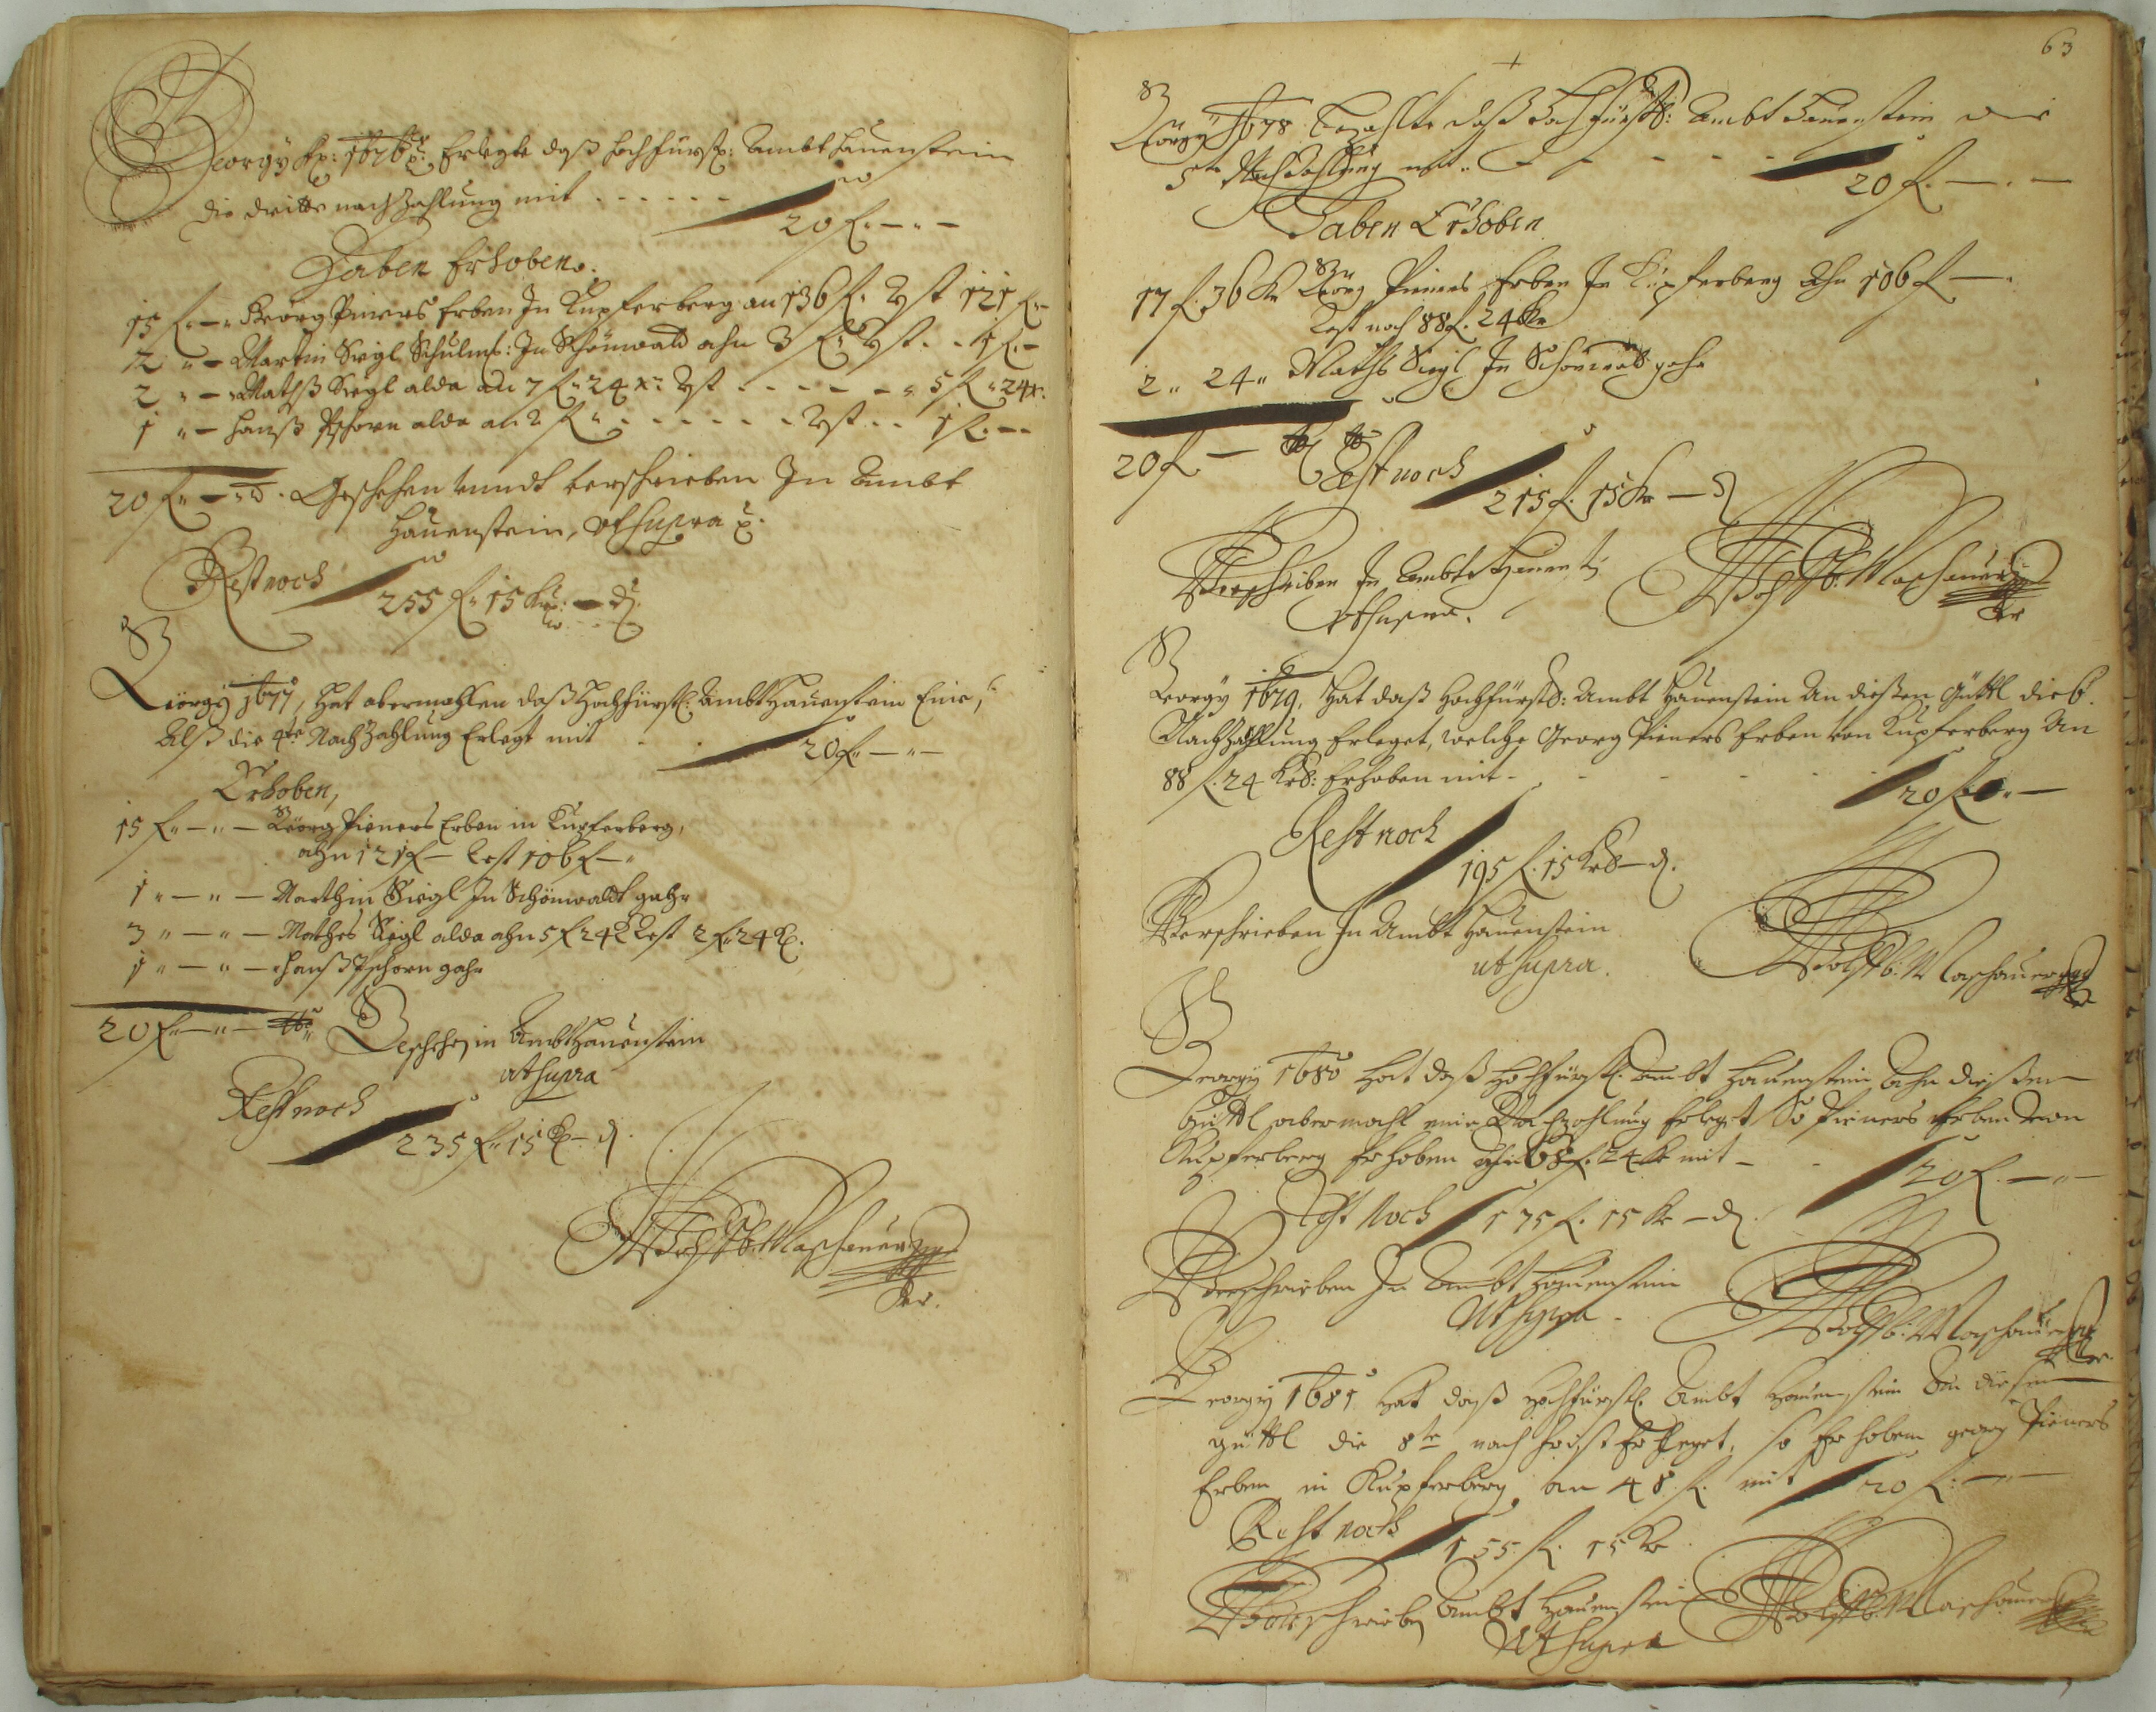 Georgÿ Ao: 1676 p: Erlegte daß hochfürstl: Ambt Hauenstein
die dritte nachZahlung mit . . . . . . 20 f. — " —
Haben Erhoben.
15 f. — " Georg Pieners Erben In Kupferberg an 136 f. Rst 121 f. —
2 " — Martin Siegl Schulms: In Schönwald ahn 3 f. Rst . . 1 f. —
2 " — Mathß Siegl alda an 7 f. 24 x. Rst . . . . . 5 f. 24 x.
1 " — Hanß Pschorn alda an 2 f. . . . . . . Rst . . 1 f. —
20 f. — " — . Geschehen vnndt verschrieben In Ambt
Hauenstein, vt supra p.
Rest noch 255 f. 15 Kr: — d.
Geörgÿ 1677, Hat abermahlen daß Hochfürstl: Ambt Hauenstein Eine,
Alß die 4te NachZahlung Erlegt mit 20 f. — " —
Erhoben,
15 f. — " — Geörg Pieners Erben in Kupferberg,
ahn 121 f — Rest 106 f — "
1 " — " — Marthin Siegl In Schönwaldt gahr
3 " — " — Mathes Siegl alda ahn 5 f 24 K Rest 2 f. 24 K.
1 " — " — Hanß Pschorn gahr
20 f. — " — Geschehen in Ambt Hauenstein
ut supra
Rest noch 235 f. 15 K — d.
Wolf B: Maschauer
63
Geörgÿ 1678 bezahlte daß Hochfürstl: Ambt Hauenstein die
5te NachZahlung mit . . — — — — 20 f. — " —
Haben Erhoben.
17 f. 36 Kr Georg Pieners Erben In Kupferberg Ahn 106 f — .
Rest noch 88 f. 24 Kr
2 " 24 " Mathß Siegl In Schönwald gahr
20 f — Rest noch 215 f. 15 Kr — d
Verschrieben In Ambt Hauenst:
vt supra.
Wolf B: Maschauer
Georgÿ 1679, Hat daß Hochfürstl: Ambt Hauenstein An dießen Güttl die 6.
NachZahlung Erleget, welche Georg Pieners Erben von Kupferberg An
88 f. 24 Kr: Erhoben mit — 20 f. — " —
Rest noch 195 f. 15 Kr — d.
Verschrieben In Ambt Hauenstein
ut supra.
Wolf B: Maschauer
Georgÿ 1680 Hat daß Hochfürstl. Ambt Hauenstein Ahn dießen
Güttl abermahl eine Nachzahlung Erleget So Pieners Erben von
Kupferberg Erhoben ahn 68 f. 24 Kr mit — 20 f. — " —
Rest Noch 175 f. 15 Kr — d.
Verschrieben In Ambt Hauenstein
Ut supra.
Wolf B: Maschauer
Georgÿ 1681 Hat daß Hochfürstl. Ambt Hauenstein An diesem
güttl die 8te nachfrist Erleget, so Erhoben georg Pieners
Erben in Kupferberg an 48 f. mit 20 f. — " —
Rest noch 155 f. 15 Kr
Verschrieben Ambt Hauenstein
Ut supra
Wolf B: Maschauer